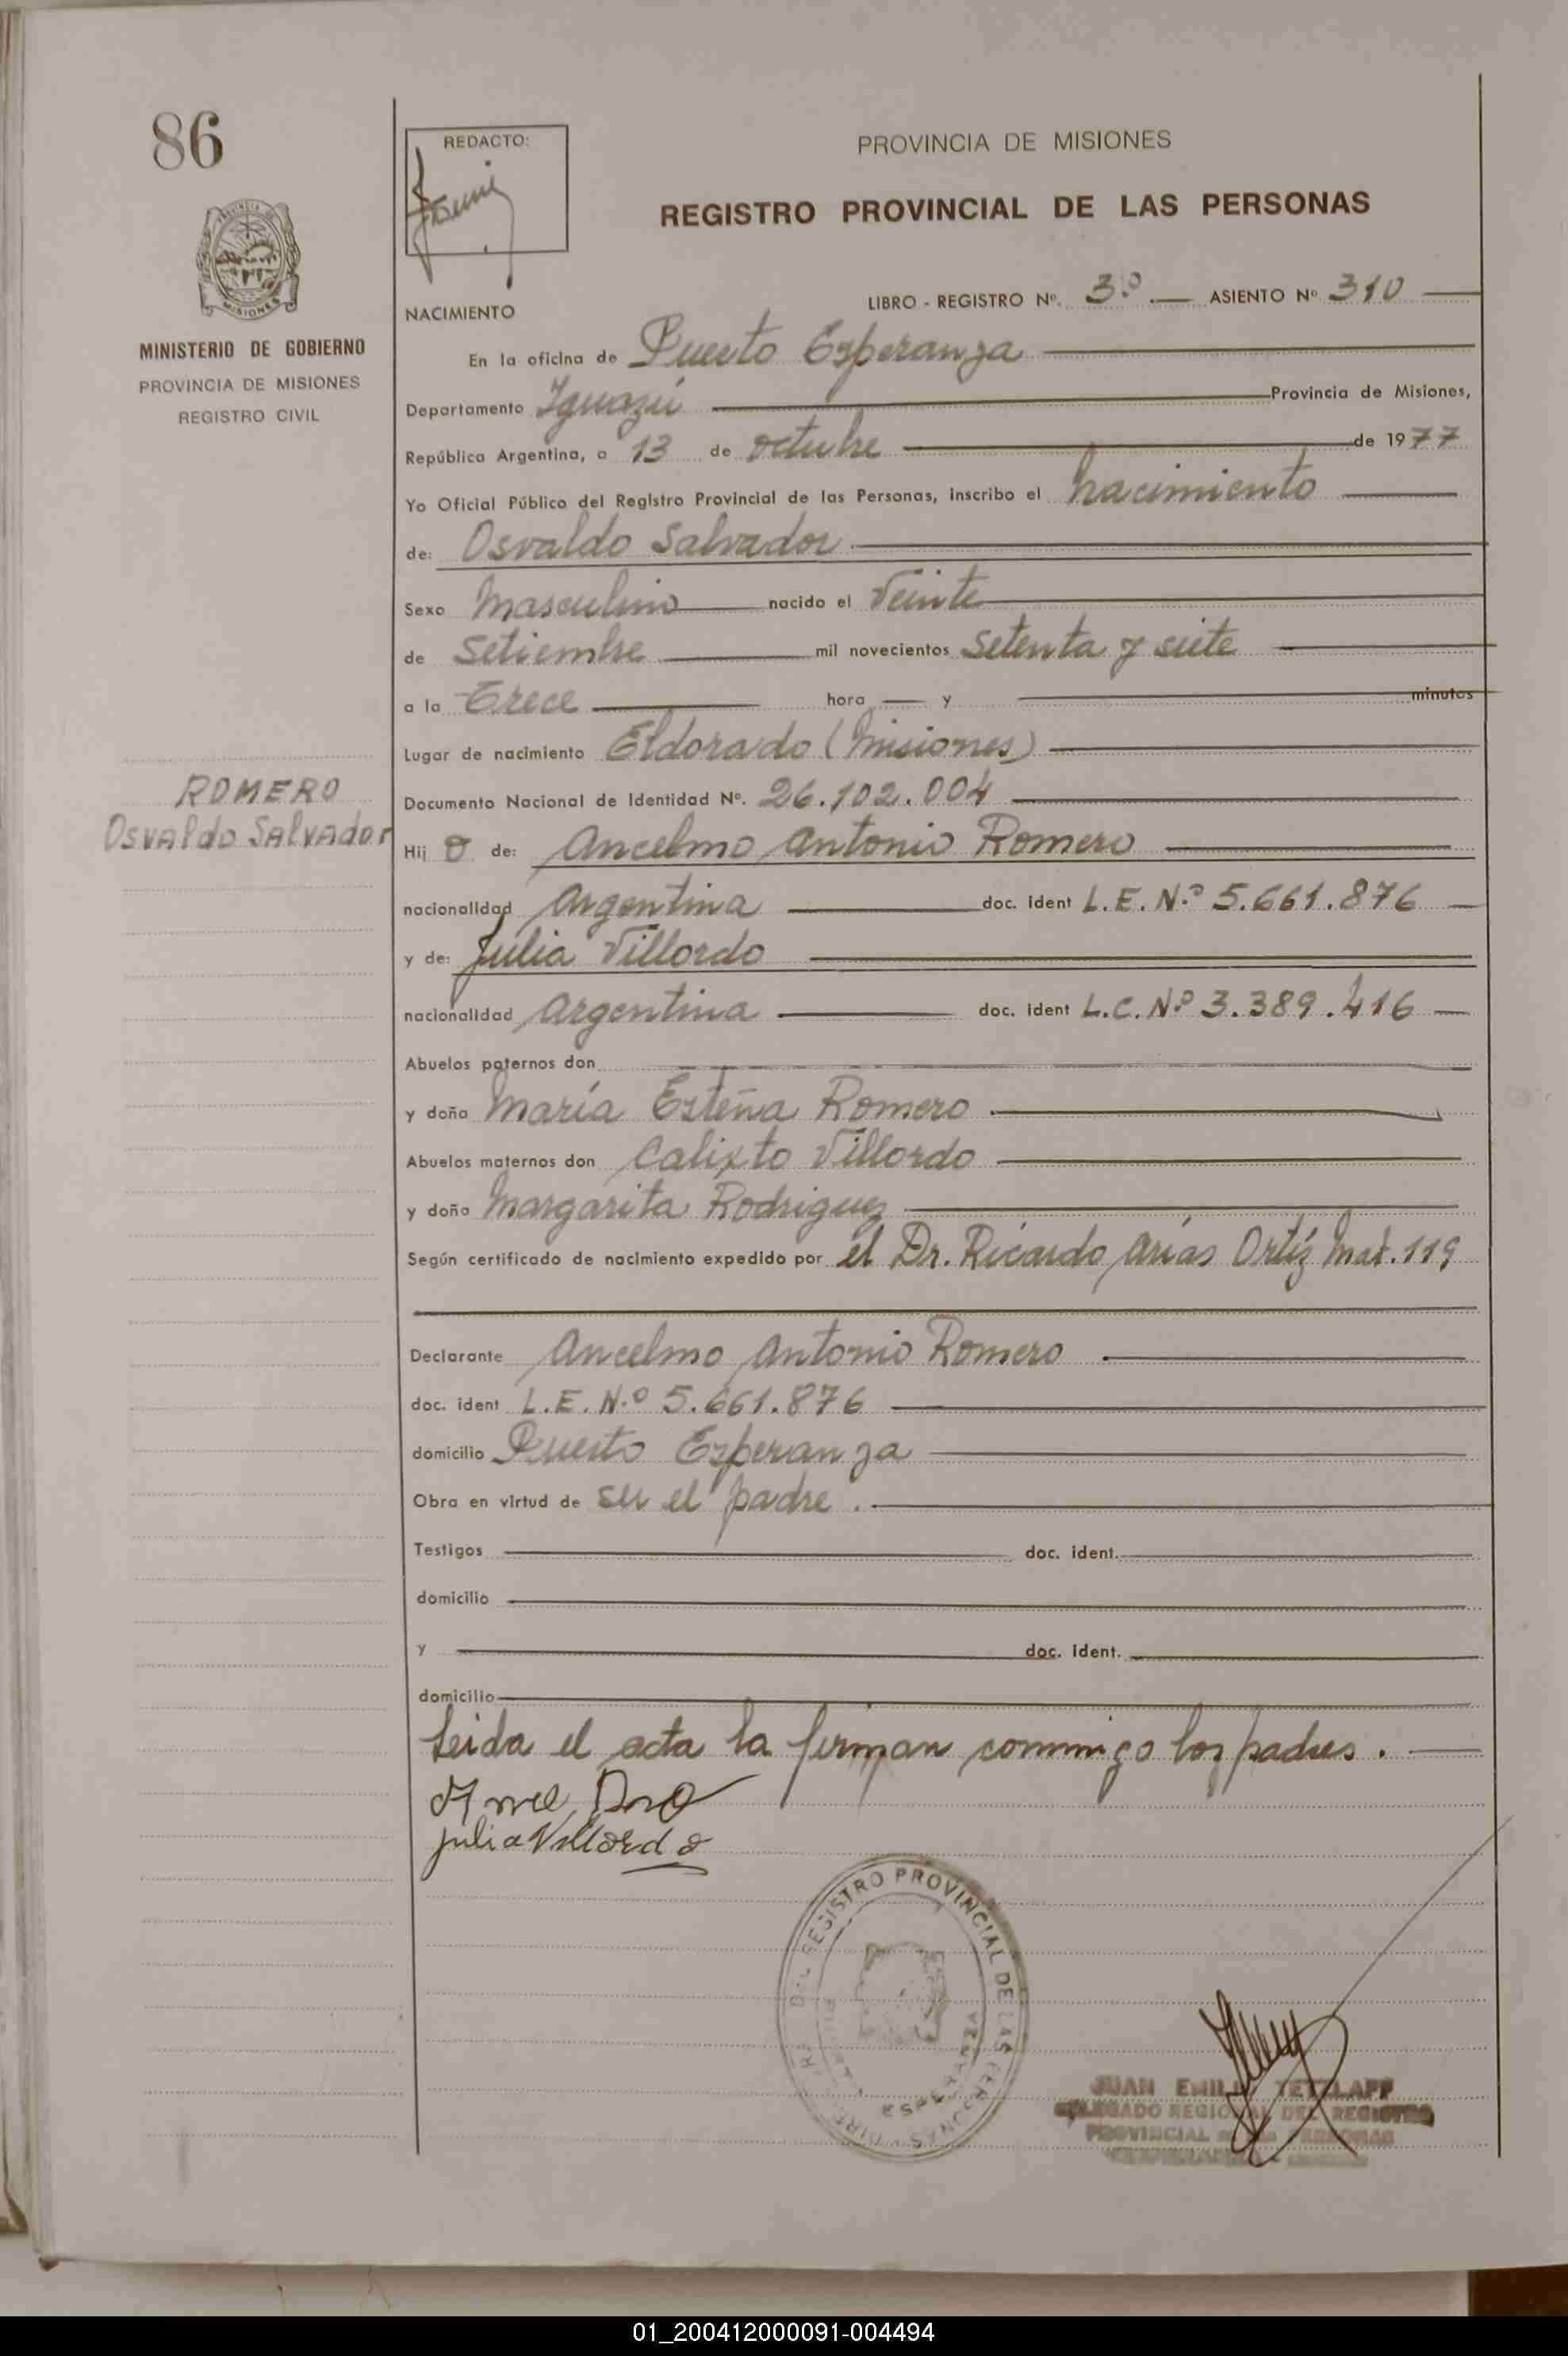 86
PROVINCIA DE MISIONES
MINISTERIO DE GOBIERNO
PROVINCIA DE MISIONES
REGISTRO CIVIL
ROMERO
Osvaldo Salvador
REDACTO:
PROVINCIA DE MISIONES
REGISTRO PROVINCIAL DE LAS PERSONAS
LIBRO - REGISTRO Nº. 3º. — ASIENTO Nº 310
NACIMIENTO
En la oficina de Puerto Esperanza
Departamento Iguazú Provincia de Misiones,
República Argentina, a 13 de octubre de 1977
Yo Oficial Público del Registro Provincial de las Personas, inscribo el nacimiento
de: Osvaldo Salvador
Sexo Masculino nacido el Veinte
de Setiembre mil novecientos Setenta y siete
a la Trece hora — y minutos
Lugar de nacimiento Eldorado (Misiones)
Documento Nacional de Identidad Nº. 26.102.004
Hij o de: Ancelmo Antonio Romero
nacionalidad Argentina doc. ident L.E. N.º 5.661.876
y de: Julia Villordo
nacionalidad Argentina doc. ident L.C. Nº 3.389.416
Abuelos paternos don
y doña María Esteña Romero
Abuelos maternos don Calixto Villordo
y doña Margarita Rodriguez
Según certificado de nacimiento expedido por el Dr. Ricardo Arias Ortíz Mat. 119
Declarante Ancelmo Antonio Romero
doc. ident L.E. N.º 5.661.876
domicilio Puerto Esperanza
Obra en virtud de ser el padre.
Testigos doc. ident.
domicilio
y doc. ident.
domicilio
Leida el acta la firman conmigo los padres.
julia Villordo
REGISTRO PROVINCIAL DE LAS PERSONAS
JUAN EMILIO TETZLAFF
DELEGADO REGIONAL DEL REGISTRO
PROVINCIAL PERSONAS
01_200412000091-004494